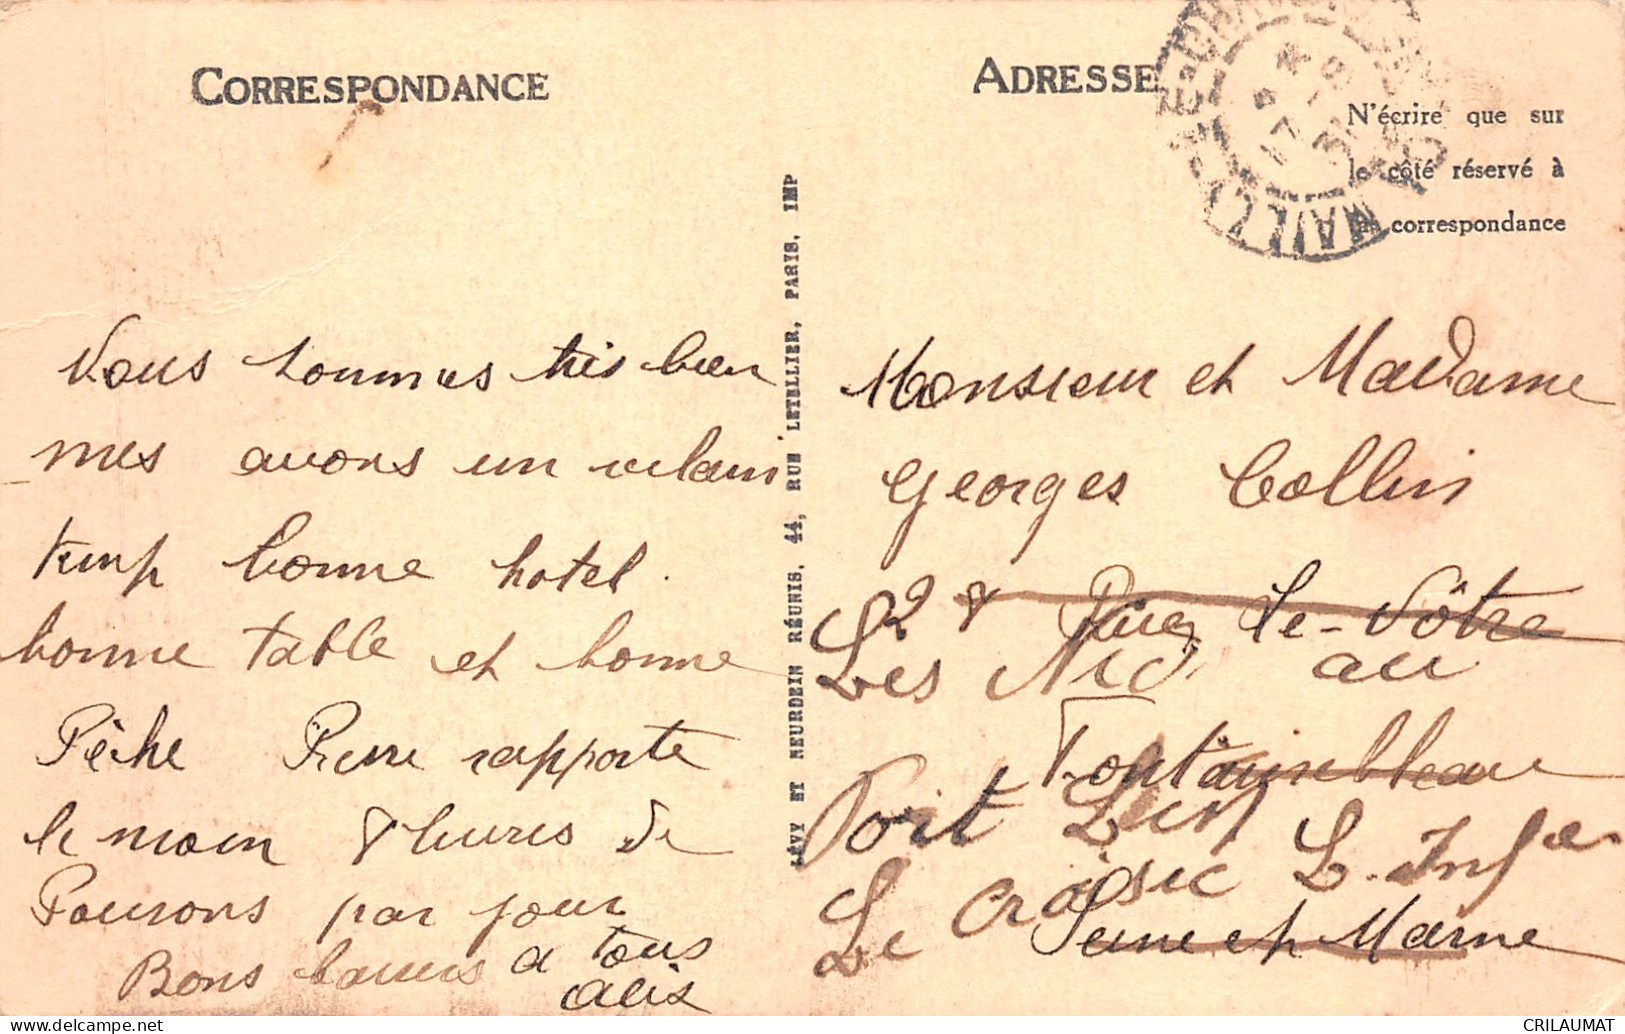 CORRESPONDANCE
Nous sommes très bien
mes avons un vilain
temp bonne hotel.
bonne table et bonne
Pêche Pierre rapporte
le moin 8 livres de
Poissons par jour
Bons baisers a tous
Alix
LÉVY ET NEURDEIN RÉUNIS, 44, RUE LETELLIER, PARIS, IMP
ADRESSE
N'écrire que sur
le côté réservé à
la correspondance
MAILLY-LE-CHA
Monsieur et Madame
Georges Collin
8 Le-Nôtre
Les Nid au
Fontainebleau
Port Lin
Le Croisic L. Infre
Seine et Marne
CRILAUMAT